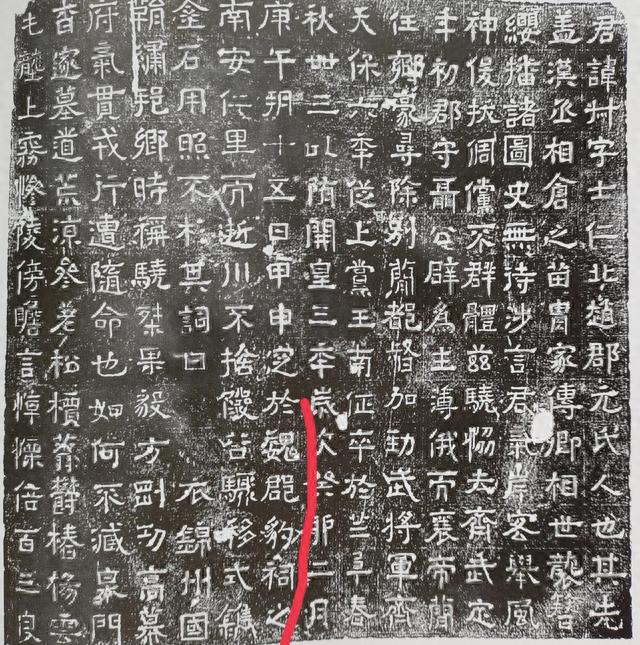 君諱字士仁北趙郡元氏人也其先
蓋漢丞相倉之苗胄家傳卿相世襲簪
纓播諸圖史無待涉言君氣岸客舉風
神俊拔倜儻不群體茲驍協去齊武定
年初郡守聶公辟為主薄俄而襄帝簡
任鄉豪尋除別蕳都督加勁武將軍齊
天保六年從上黨王南征卒於年春
秋卌三以隋開皇三年歲次癸卯二月
庚午朔十五日甲申窆於魏郡豹祠之
南安仁里而逝川不捨陵谷驟移式鐫
金石用照不朽其詞曰 衣錦州國
繡挹鄉時稱驍桀果毅方剛功高幕
府氣貫戎行遭隨命也如何不臧泉門
杳邃墓道荒涼參差松檟蓊鬱椿楊雲
壟上霧慘陵傍瞻言悼懍倍百三良